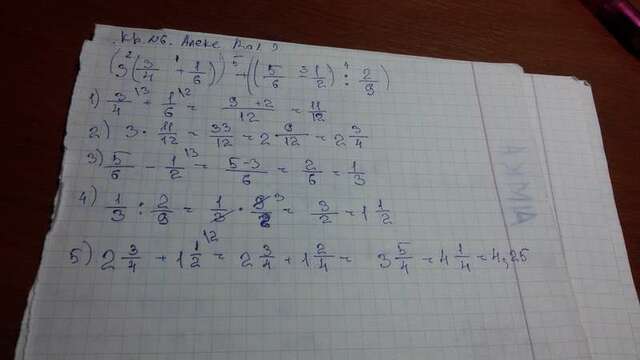 К.р. №6. Алекс
(3(3/4 + 1/6)) + ((5/6 - 1/2) : 2/9)
1) 3/4 + 1/6 = 9+2/12 = 11/12
2) 3 · 11/12 = 33/12 = 2 9/12 = 2 3/4
3) 5/6 - 1/2 = 5-3/6 = 2/6 = 1/3
4) 1/3 : 2/9 = 1/3 · 9/2 = 3/2 = 1 1/2
5) 2 3/4 + 1 1/2 = 2 3/4 + 1 2/4 = 3 5/4 = 4 1/4 = 4,25